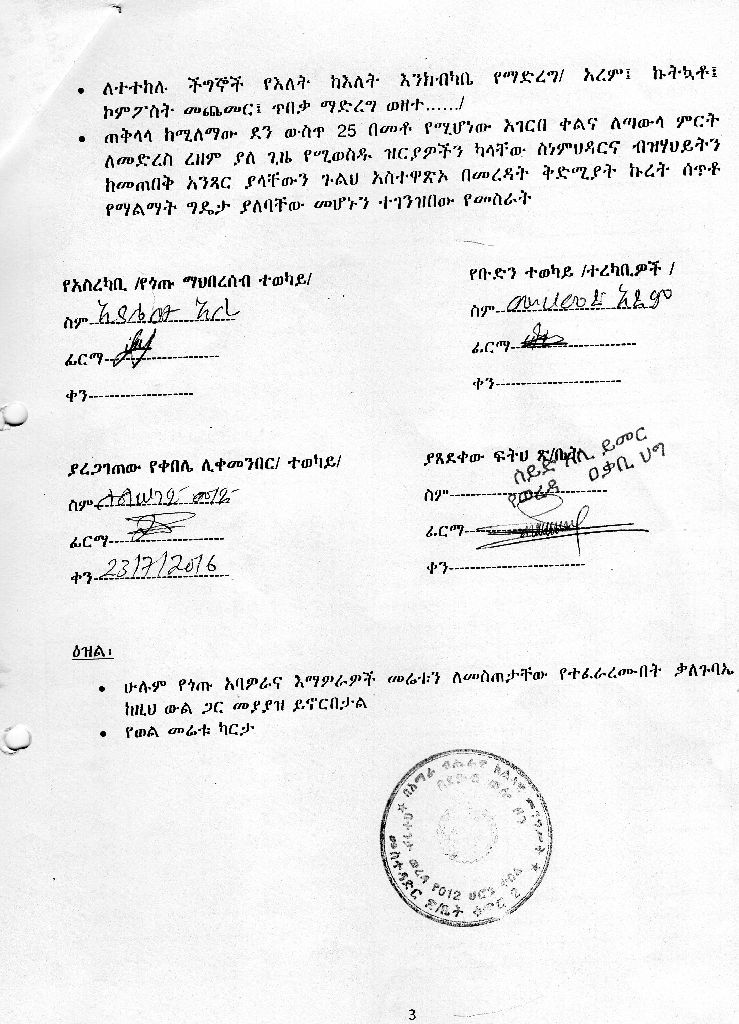 • ለተተከሉ ችግኞች የእለት ከእለት እንክብካቤ የማድረግ/ አረም፤ ኩትኳቶ፤
ኮምፖስት መጨመር፤ ጥበቃ ማድረግ ወዘተ……/
• ጠቅላላ ከሚለማው ደን ውስጥ 25 በመቶ የሚሆነው አገርበ ቀልና ለጣውላ ምርት
ለመድረስ ረዘም ያለ ጊዜ የሚወስዱ ዝርያዎችን ካላቸው ስነምህዳርና ብዝሃህይትን
ከመጠበቅ አንጻር ያላቸውን ጉልህ አስተዋጽኦ በመረዳት ቅድሚያት ኩረት ሰጥቶ
የማልማት ግዴታ ያለባቸው መሆኑን ተገንዝበው የመስራት
የአስረካቢ /የጎጡ ማህበረሰብ ተወካይ/
ስም
ፊርማ
ቀን
የቡድን ተወካይ /ተረካቢዎች /
ስም
ፊርማ
ቀን
ያረጋገጠው የቀበሌ ሊቀመንበር/ ተወካይ/
ስም
ፊርማ
ቀን 23/7/2016
ያጸደቀው ፍትህ ጽ/ቤት
ሰይድ አሊ ይመር
የወረዳ ዐቃቢ ህግ
ስም
ፊርማ
ቀን
ዕዝል፡
• ሁሉም የጎጡ አባዎራና እማዎራዎች መሬቱን ለመስጠታቸው የተፈራረሙበት ቃለጉባኤ
ከዚህ ውል ጋር መያያዝ ይኖርበታል
• የወል መሬቱ ካርታ
በአማራ ብሔራዊ ክልላዊ መንግሥት
በደቡብ ወሎ ዞን
ወረዳ የ012
3